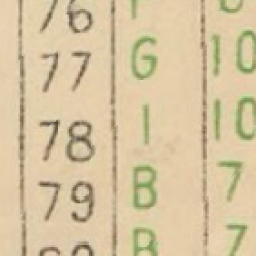 76
77 G 10
78 I 10
79 B 7
B 7